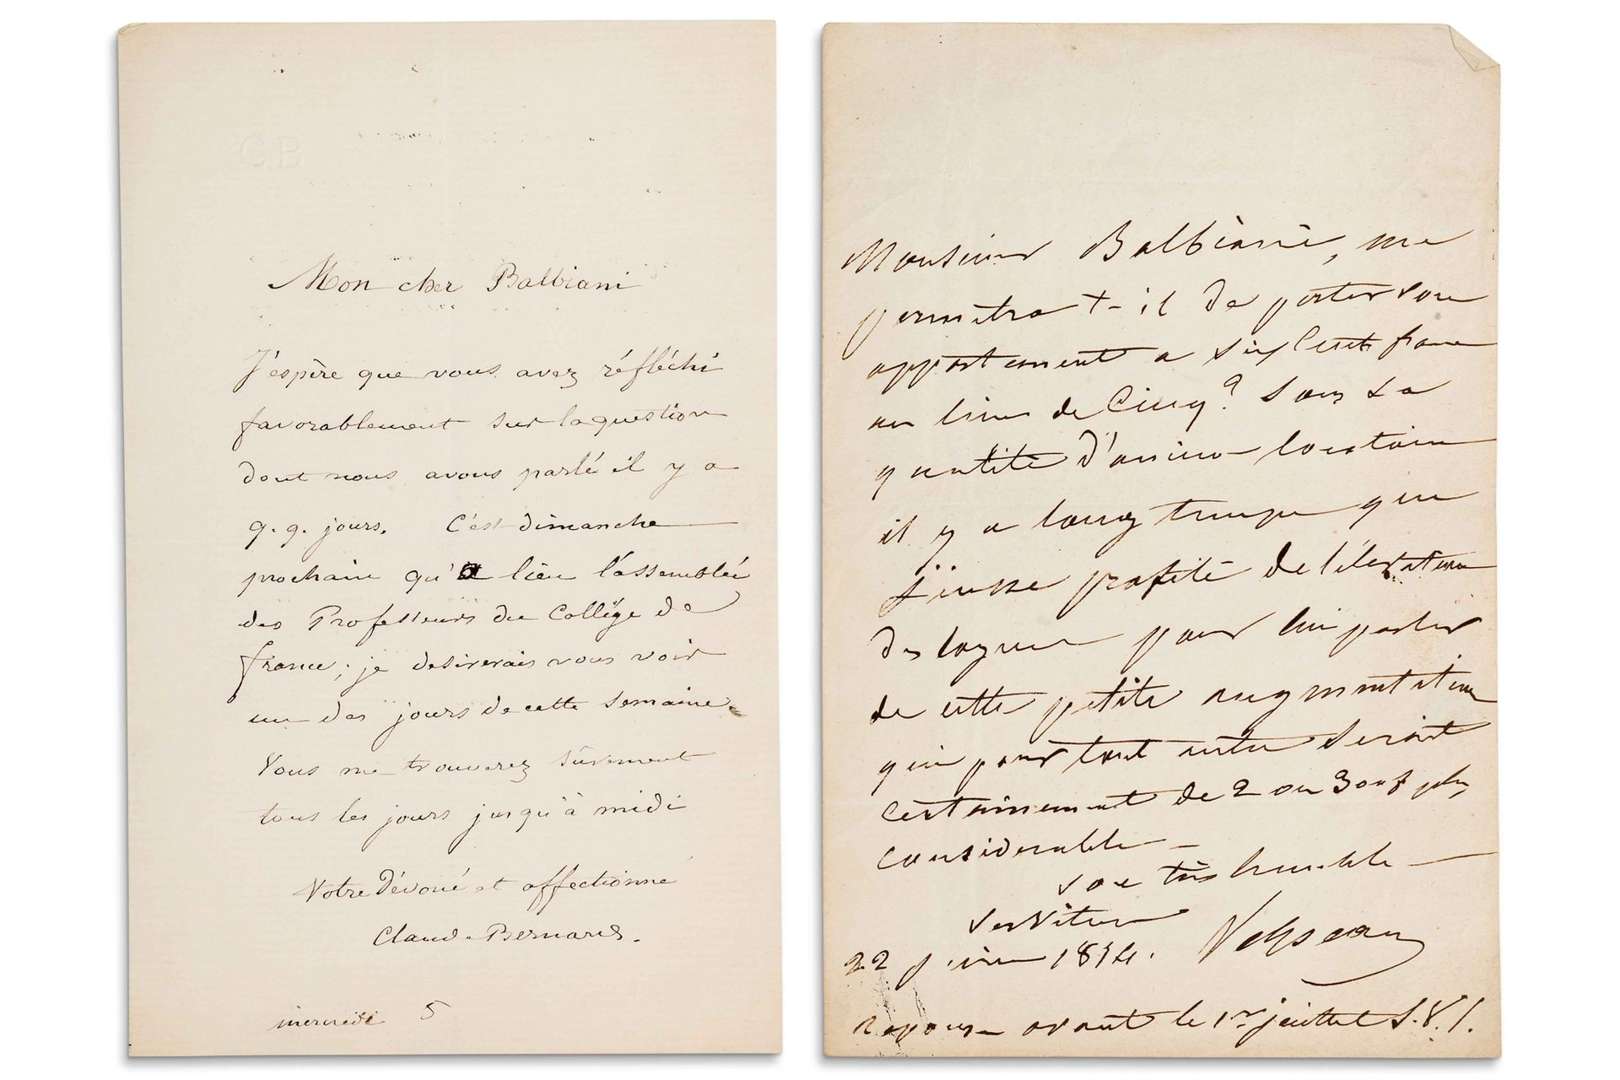 C.B
Mon cher Balbiani
J'espère que vous avez réfléchi
favorablement sur la question
dont nous avons parlé il y a
q.q. jours. C'est dimanche
prochain qu'a lieu l'assemblée
des Professeurs du Collège de
france; je desirerais vous voir
un des jours de cette semaine.
Vous me trouverez sûrement
tous les jours jusqu'à midi
Votre dévoué et affectionné
Claude Bernard.
mercredi 5
Monsieur Balbiani, me
permetra t-il de porter son
appartement a six Cent franc
au lieu de Cinq? Sans la
quantité d'ancien locataire
il y a longtemps que
j'eusse profité de l'élévation
des loyers pour lui parler
de cette petite augmentation
qui pour tout autre serait
certainement de 2 ou 300 f plus
considerable –
son très humble
serviteur
22 juin 1854. Velpeau
reponse avant le 1er juillet S.V.P.